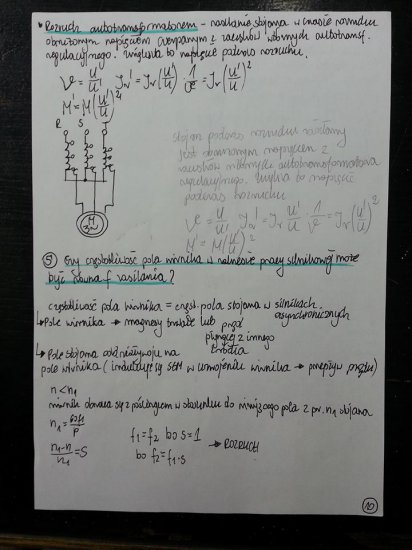 • Rozruch autotransformatorem - zasilanie stojana w czasie rozruchu
obniżonym napięciem czerpanym z zacisków wtórnych autotransf.
regulacyjnego. Zwiększa to napięcie podczas rozruchu.
R S
M
3~
Stojan podczas rozruchu zasilany
jest obniżonym napięciem z
zacisków wtórnych autotransformatora
regulacyjnego. to napięcie
podczas rozruchu
⑤ Czy częstotliwość pola wirnika w zakresie pracy silnikowej może
być równa f zasilania?
częstotliwość pola wirnika = częst. pola stojana w silnikach
asynchronicznych
↳ Pole wirnika → magnesy trwałe lub prąd
płynący z innego
źródła
↳ Pole stojana oddziaływuje na
pole wirnika (indukuje się SEM w uzwojeniu wirnika → przepływ prądu)
n < n₁
wirnik obraca się z poślizgiem w stosunku do wirującego pola z pr. n₁ stojana
n₁ = 60f₁/p
(n₁-n)/n₁ = S
f₁ = f₂ bo s = 1
bo f₂ = f₁·s
→ ROZRUCH
10